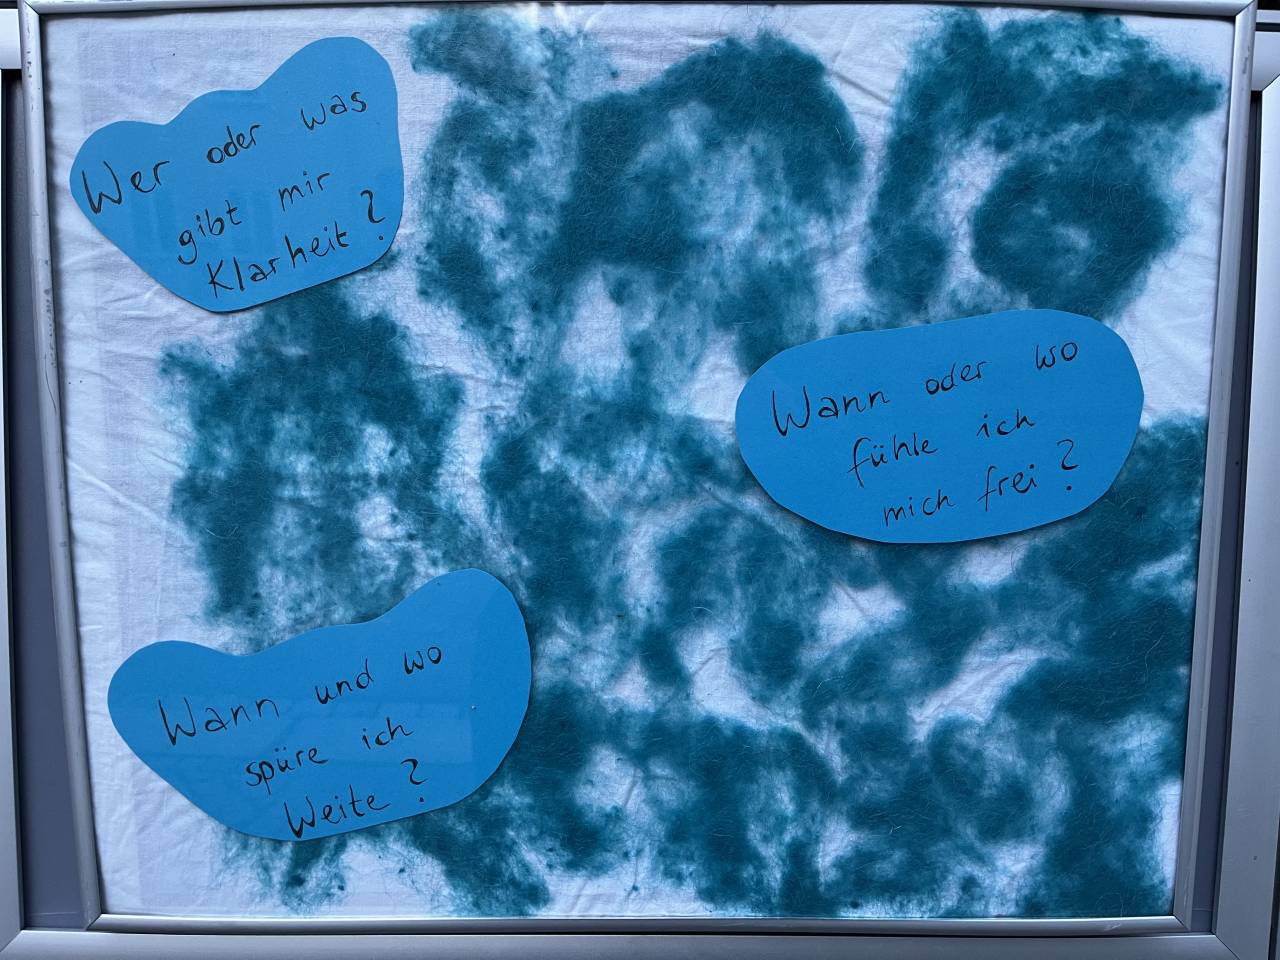 Wer oder was
gibt mir
Klarheit?
Wann oder wo
fühle ich
mich frei?
Wann und wo
spüre ich
Weite?